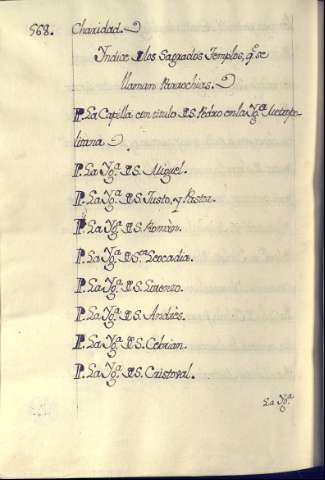 568. Charidad.
Yndice de los Sagrados Templos, q.e se
llaman Parrochias.
P. La Capilla con titulo de S. Pedro en la Yg.a Metropo-
litana
P. La Yg.a de S. Miguel.
P. La Yg.a de S. Justo, y Pastor.
P. La Yg.a de S. Román.
P. La Yg.a de S.ta Leocadia.
P. La Yg.a de S. Lorenzo.
P. La Yg.a de S. Andrés.
P. La Yg.a de S. Cebrian.
P. La Yg.a de S. Cristoval.
La Yg.a